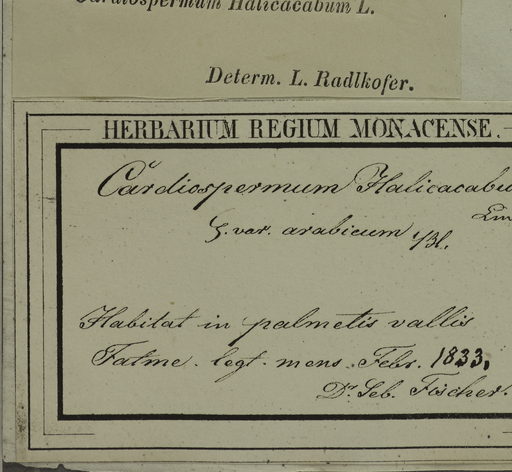 Cardiospermum Halicacabum L.
Determ. L. Radlkofer.
HERBARIUM REGIUM MONACENSE.
Cardiospermum Halicacabu
Lin
var. arabicum
Habitat in palmetis vallis
Fatme. legt. mens. Febr. 1833.
Dr. Seb. Fischer.